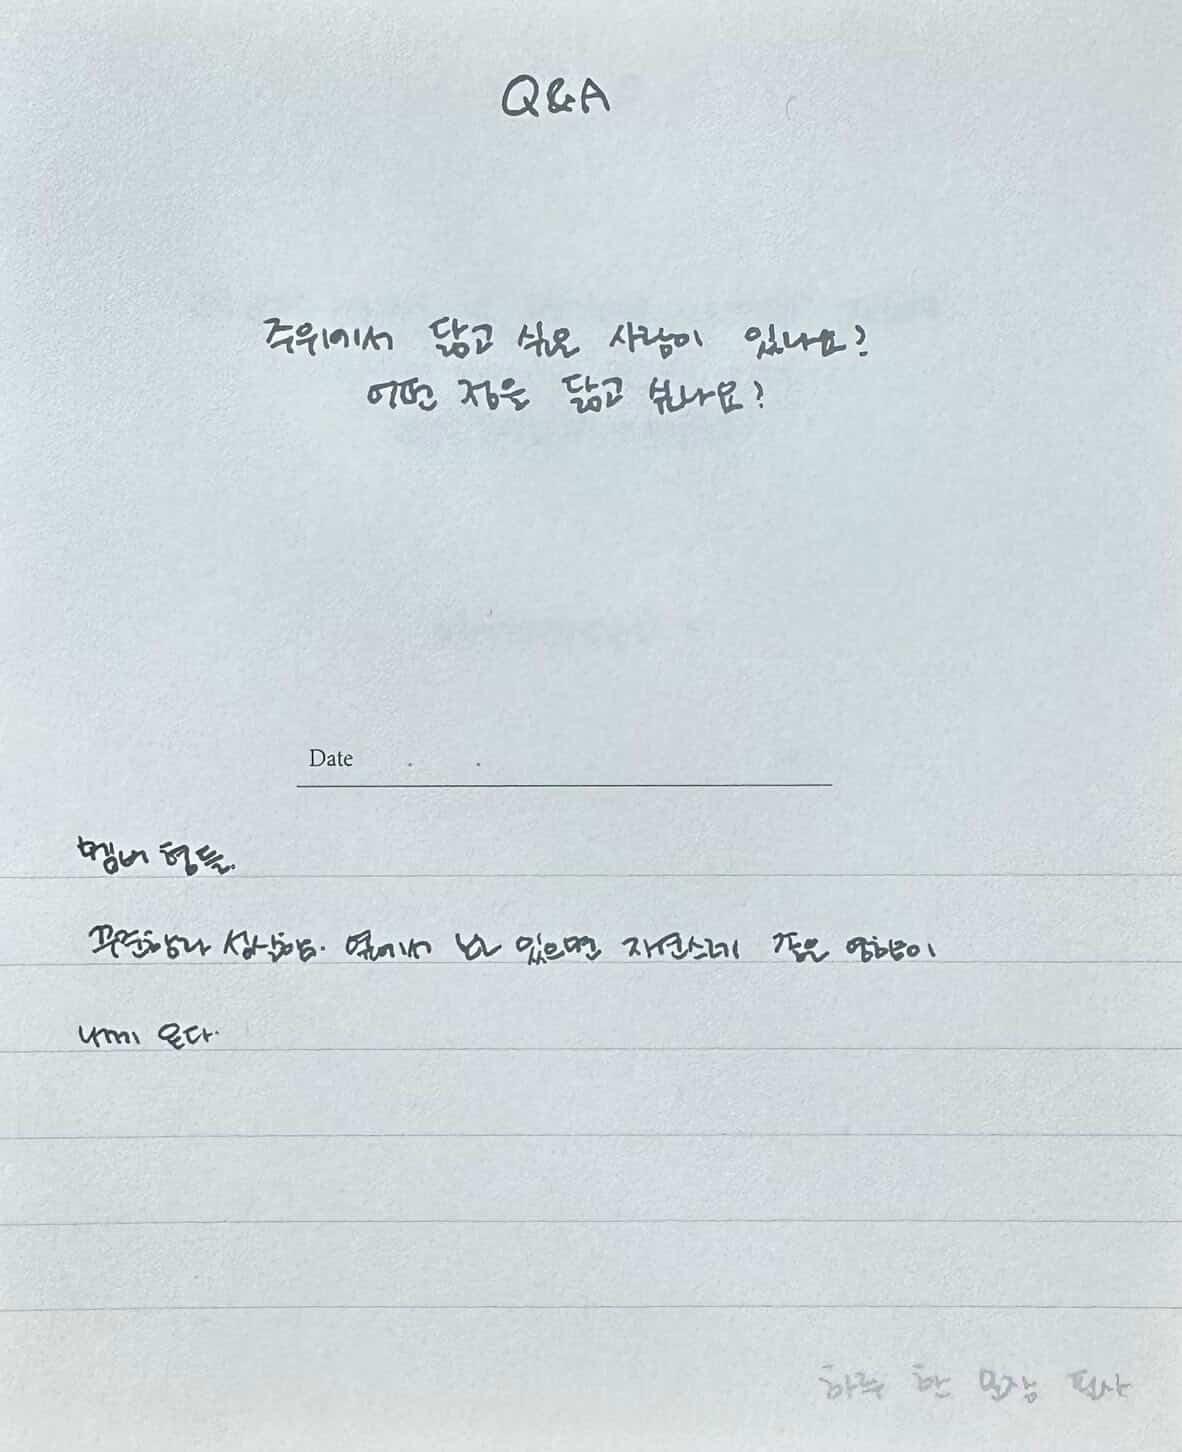 Q&A
주위에서 닮고 싶은 사람이 있나요?
어떤 점을 닮고 싶나요?
Date . .
멤버 형들.
꾸준함과 성실함. 옆에서 보고 있으면 자연스레 좋은 영향이
나에게 온다.
하루 한 문장 필사